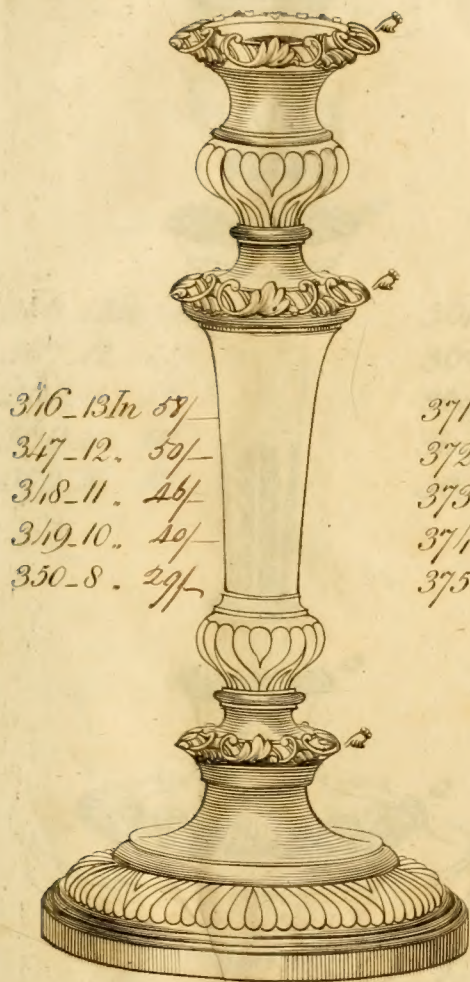 346-13In 58/-
347-12 „ 50/-
348-11 „ 46/-
349-10 „ 40/-
350-8 „ 29/-
371
372
373
374
375